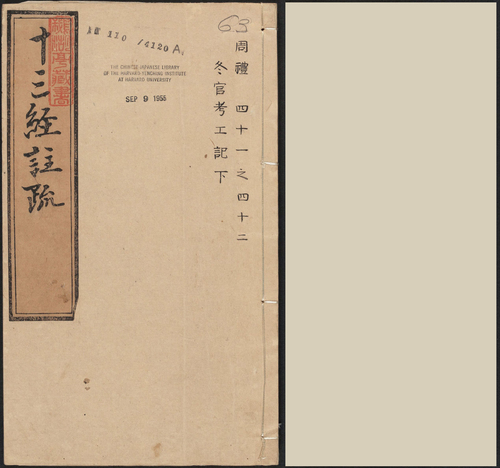 十三經註疏
110 /4120A
THE CHINESE-JAPANESE LIBRARY
OF THE HARVARD-YENCHING INSTITUTE
AT HARVARD UNIVERSITY
SEP 9 1956
63
周禮 四十一之四十二
冬官考工記下